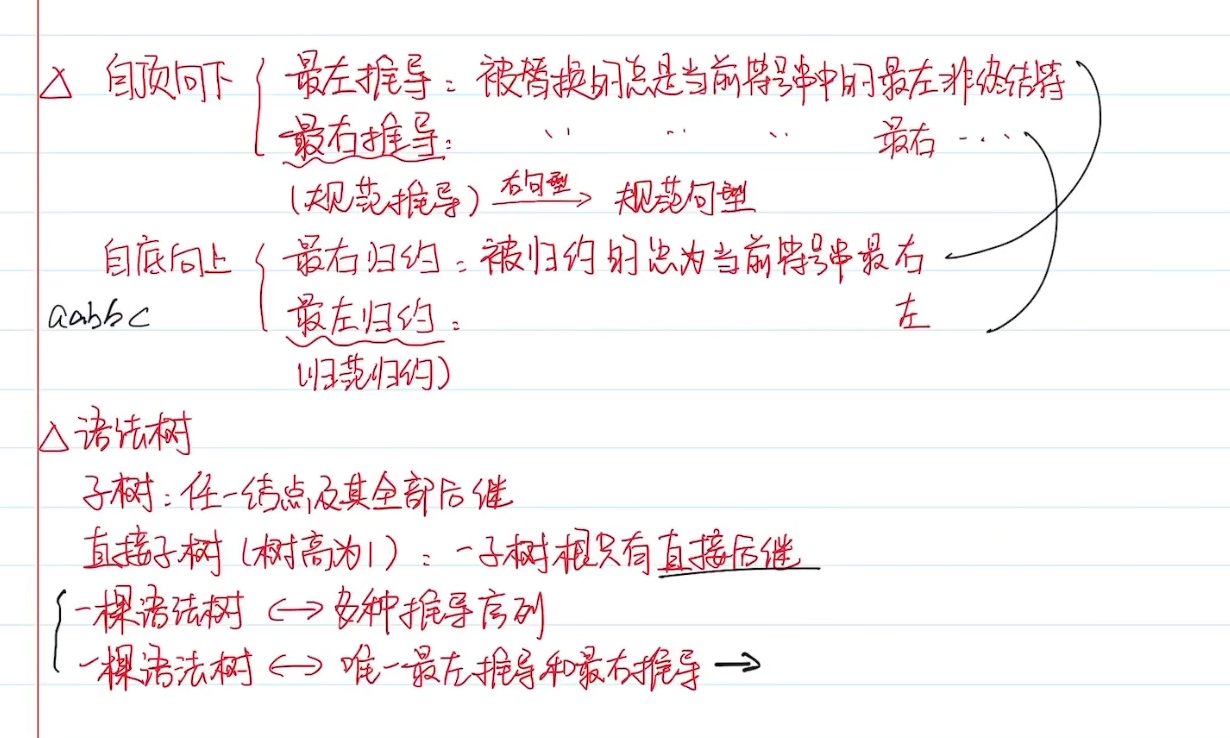 △ 自顶向下 { 最左推导：被替换的总是当前符号串中的最左非终结符
最右推导： 〃 〃 〃 最右 ····
(规范推导) 右句型 → 规范句型
自底向上 { 最右归约：被归约的总为当前符号串最右
aabbc 最左归约： 左
(归范归约)
△ 语法树
子树：任一结点及其全部后继
直接子树(树高为1)：一子树根只有直接后继
{ 一棵语法树 ↔ 多种推导序列
一棵语法树 ↔ 唯一最左推导和最右推导 →